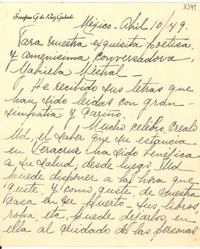 Josefina G. de Ruiz Galindo
México - Abril 10/49.
Para nuestra exquisita poetisa,
y amenísima conversadora,
Gabriela Mistral -
He recibido sus letras que
han sido leídas con gran
simpatía y cariño.
Mucho celebro, créalo
Ud. el saber que su estancia
en Veracruz ha sido benéfica
a su salud, desde luego Ud.
puede disponer a la hora que
guste y como guste de nuestra
casa en su puerto. Sus libros,
ropa etc. puede dejarlos, en
ella al cuidado de las personas